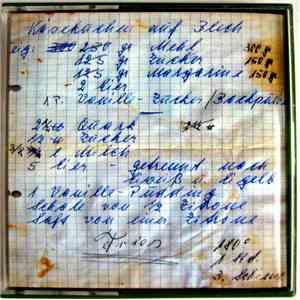 Käsekuchen auf Blech
250 gr Mehl 300 gr
125 gr Zucker 150 gr
125 gr Margarine 150 gr
2 Eier
1 P. Vanille-Zucker / Backpulver
Quark
Zucker
Milch
5 Eier - getrennt nach
Eiweiß u. Eigelb
1 Vanille-Pudding
Schale von 1/2 Zitrone
Saft von einer Zitrone
180°
1 Std.